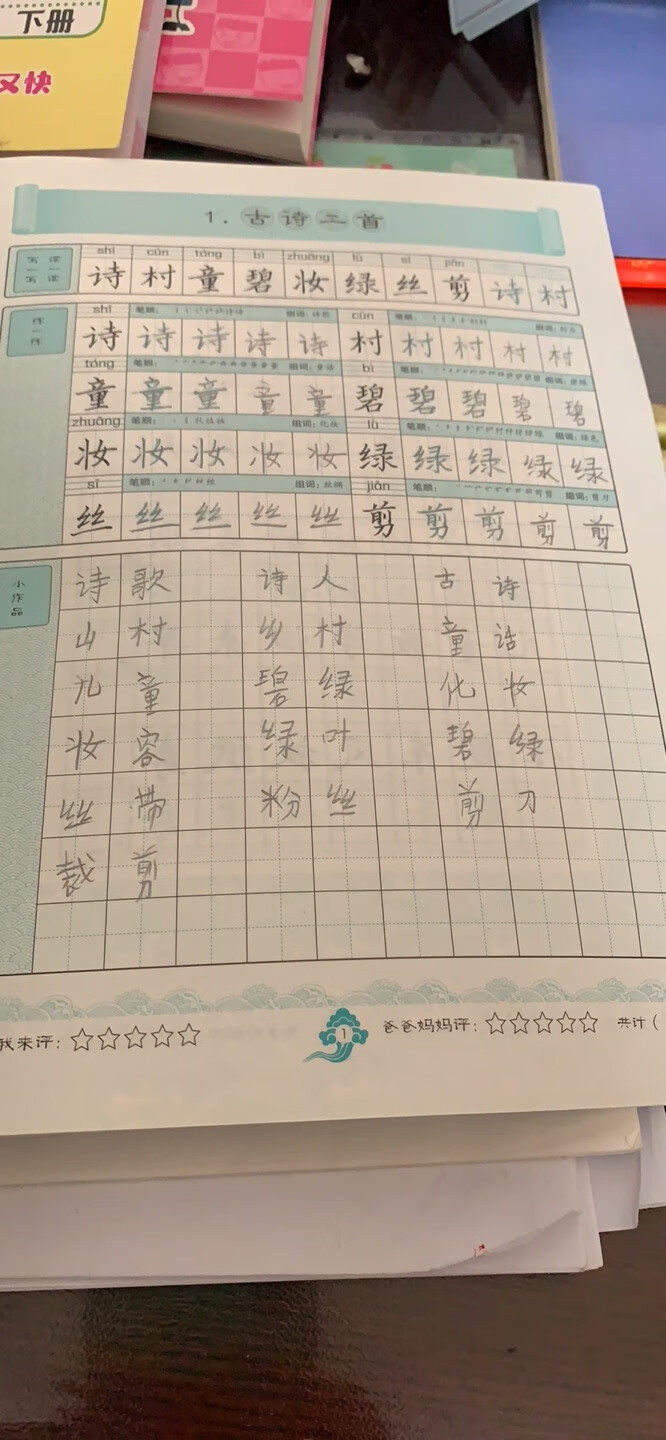 下册
又快
1. 古诗二首
shī cūn tóng bì zhuāng lǜ sī jiǎn
读一读 写一写 诗 村 童 碧 妆 绿 丝 剪 诗 村
练一练
shī 笔顺: 组词:诗歌 cūn 笔顺:
诗 诗 诗 诗 诗 村 村 村 村 村
tóng 笔顺: 组词:童话 bì 笔顺:
童 童 童 童 童 碧 碧 碧 碧 碧
zhuāng 笔顺: 组词:化妆 lǜ 笔顺: 组词:绿色
妆 妆 妆 妆 妆 绿 绿 绿 绿 绿
sī 笔顺: 组词:丝绸 jiǎn 笔顺: 组词:剪刀
丝 丝 丝 丝 丝 剪 剪 剪 剪 剪
小作品
诗歌 诗人 古诗
山村 乡村 童话
儿童 碧绿 化妆
妆容 绿叶 碧绿
丝带 粉丝 剪刀
裁剪
我来评:☆☆☆☆☆ 1 爸爸妈妈评:☆☆☆☆☆ 共计(